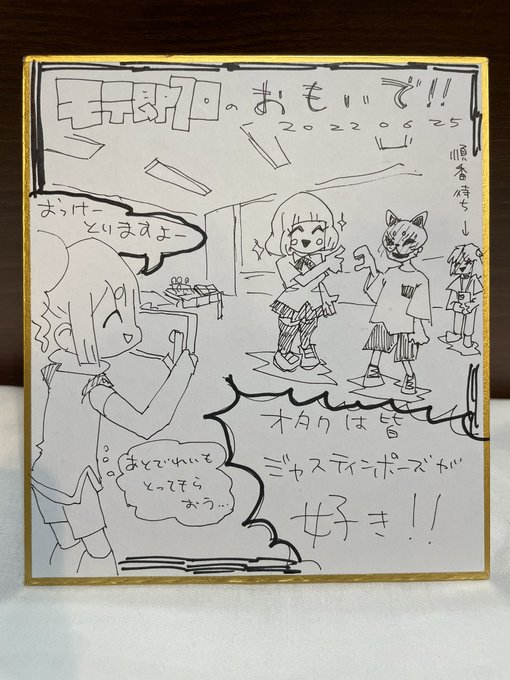 モテ郎プロのおもいで!!
2022 06 25
順番待ち→
おっけー
とりますよー
オタクは皆
ジャスティンポーズが
好き!!
あとでれいも
とってもら
おう…